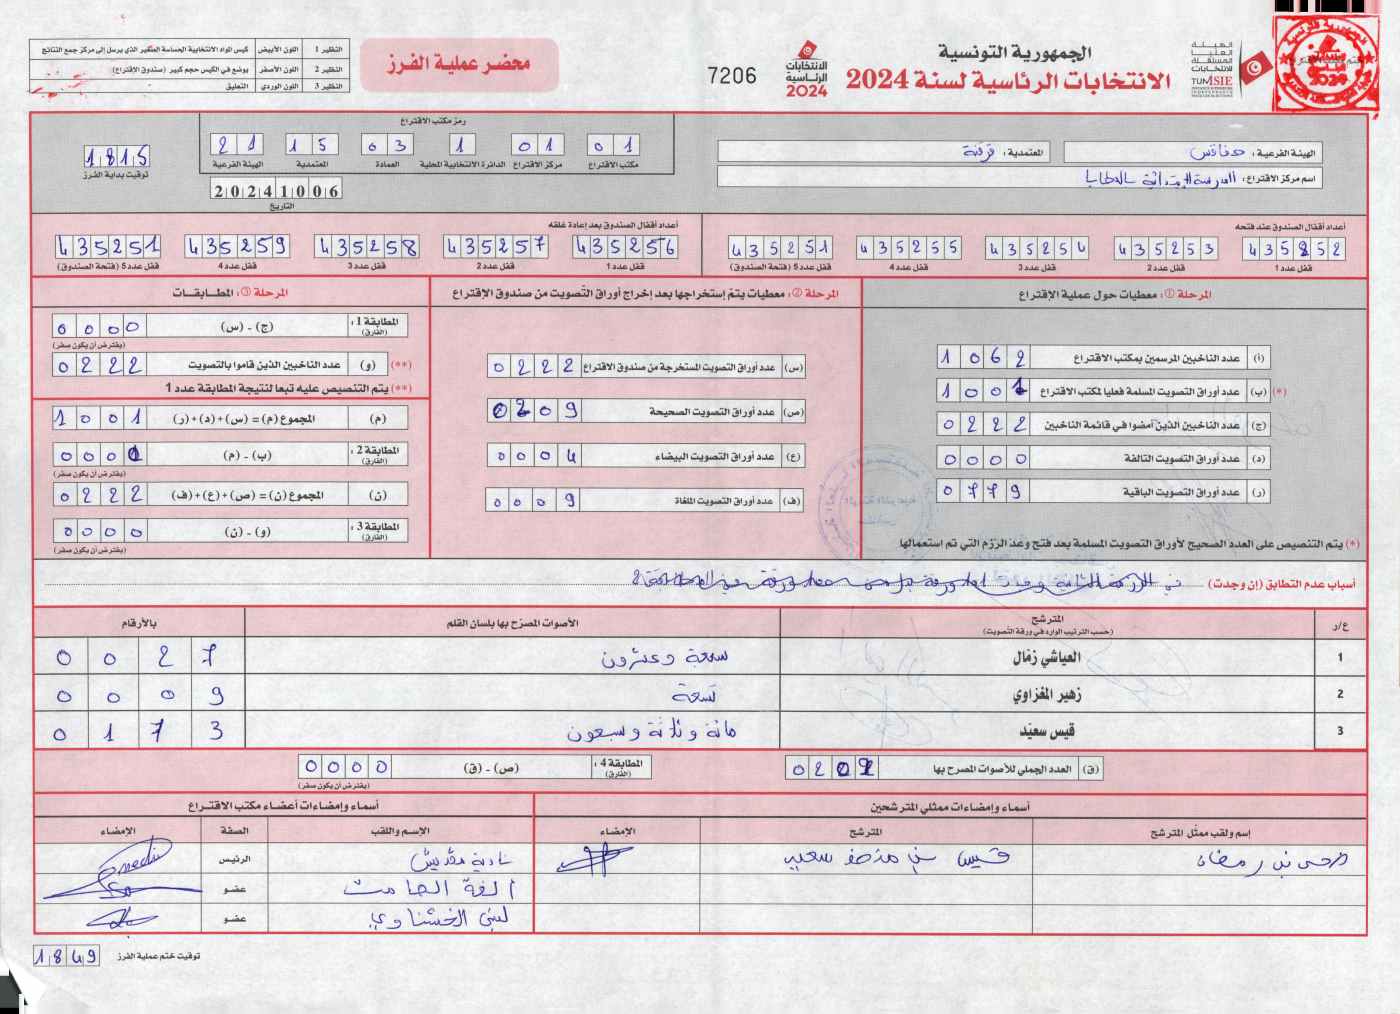 الجمهورية التونسية
الانتخابات الرئاسية لسنة 2024
الهيئة العليا المستقلة للانتخابات
TUNISIE
الانتخابات الرئاسية 2024
7206
محضر عملية الفرز
النظير 1 اللون الأبيض كيس المواد الانتخابية الحساسة الصغير الذي يرسل إلى مركز جمع النتائج
النظير 2 اللون الأصفر يوضع في الكيس حجم كبير (صندوق الاقتراع)
النظير 3 اللون الوردي التعليق
الهيئة الفرعية: صفاقس
المعتمدية: قرقنة
اسم مركز الاقتراع: المدرسة الابتدائية
رمز مكتب الاقتراع
01 01 1 03 15 21
مكتب الاقتراع مركز الاقتراع الدائرة الانتخابية المحلية العمادة المعتمدية الهيئة الفرعية
20241006
التاريخ
1815
توقيت بداية الفرز
أعداد أقفال الصندوق عند فتحه
435252 435253 435254 435255 435251
قفل عدد 1 قفل عدد 2 قفل عدد 3 قفل عدد 4 قفل عدد 5 (فتحة الصندوق)
أعداد أقفال الصندوق بعد إعادة غلقه
435256 435257 435258 435259 435251
قفل عدد 1 قفل عدد 2 قفل عدد 3 قفل عدد 4 قفل عدد 5 (فتحة الصندوق)
المرحلة ①: معطيات حول عملية الإقتراع
(أ) عدد الناخبين المرسمين بمكتب الاقتراع 1062
(*) (ب) عدد أوراق التصويت المسلمة فعليا لمكتب الاقتراع 1001
(ج) عدد الناخبين الذين أمضوا في قائمة الناخبين 0222
(د) عدد أوراق التصويت التالفة 0000
(ر) عدد أوراق التصويت الباقية 0779
(*) يتم التنصيص على العدد الصحيح لأوراق التصويت المسلمة بعد فتح وعد الرزم التي تم استعمالها
المرحلة ②: معطيات يتم إستخراجها بعد إخراج أوراق التصويت من صندوق الإقتراع
(س) عدد أوراق التصويت المستخرجة من صندوق الاقتراع 0222
(ص) عدد أوراق التصويت الصحيحة 0209
(ع) عدد أوراق التصويت البيضاء 0004
(ف) عدد أوراق التصويت الملغاة 0009
المرحلة ③: المطابقات
المطابقة 1: (الفارق) (ج) - (س) 0000
(يفترض أن يكون صفر)
(**) (و) عدد الناخبين الذين قاموا بالتصويت 0222
(**) يتم التنصيص عليه تبعا لنتيجة المطابقة عدد 1
(م) المجموع (م) = (س)+(د)+(ر) 1001
المطابقة 2: (الفارق) (ب) - (م) 0000
(يفترض أن يكون صفر)
(ن) المجموع (ن) = (ص)+(ع)+(ف) 0222
المطابقة 3: (الفارق) (و) - (ن) 0000
(يفترض أن يكون صفر)
أسباب عدم التطابق (إن وجدت) في الرزمة الثانية
ع/ر المترشح (حسب الترتيب الوارد في ورقة التصويت) الأصوات المصرّح بها بلسان القلم بالأرقام
1 العياشي زمّال سبعة وعشرون 0027
2 زهير المغزاوي تسعة 0009
3 قيس سعيّد مائة وثلاثة وسبعون 0173
(ق) العدد الجملي للأصوات المصرح بها 0209
المطابقة 4: (الفارق) (ص) - (ق) 0000
(يفترض أن يكون صفر)
أسماء وإمضاءات ممثلي المترشحين
إسم ولقب ممثل المترشح المترشح الإمضاء
بن رمضان قيس بن منصف سعيد
أسماء وإمضاءات أعضاء مكتب الاقتراع
الإسم واللقب الصفة الإمضاء
نادية مقديش الرئيس
ألفة الصامت عضو
لبنى الخشناوي عضو
توقيت ختم عملية الفرز 1849